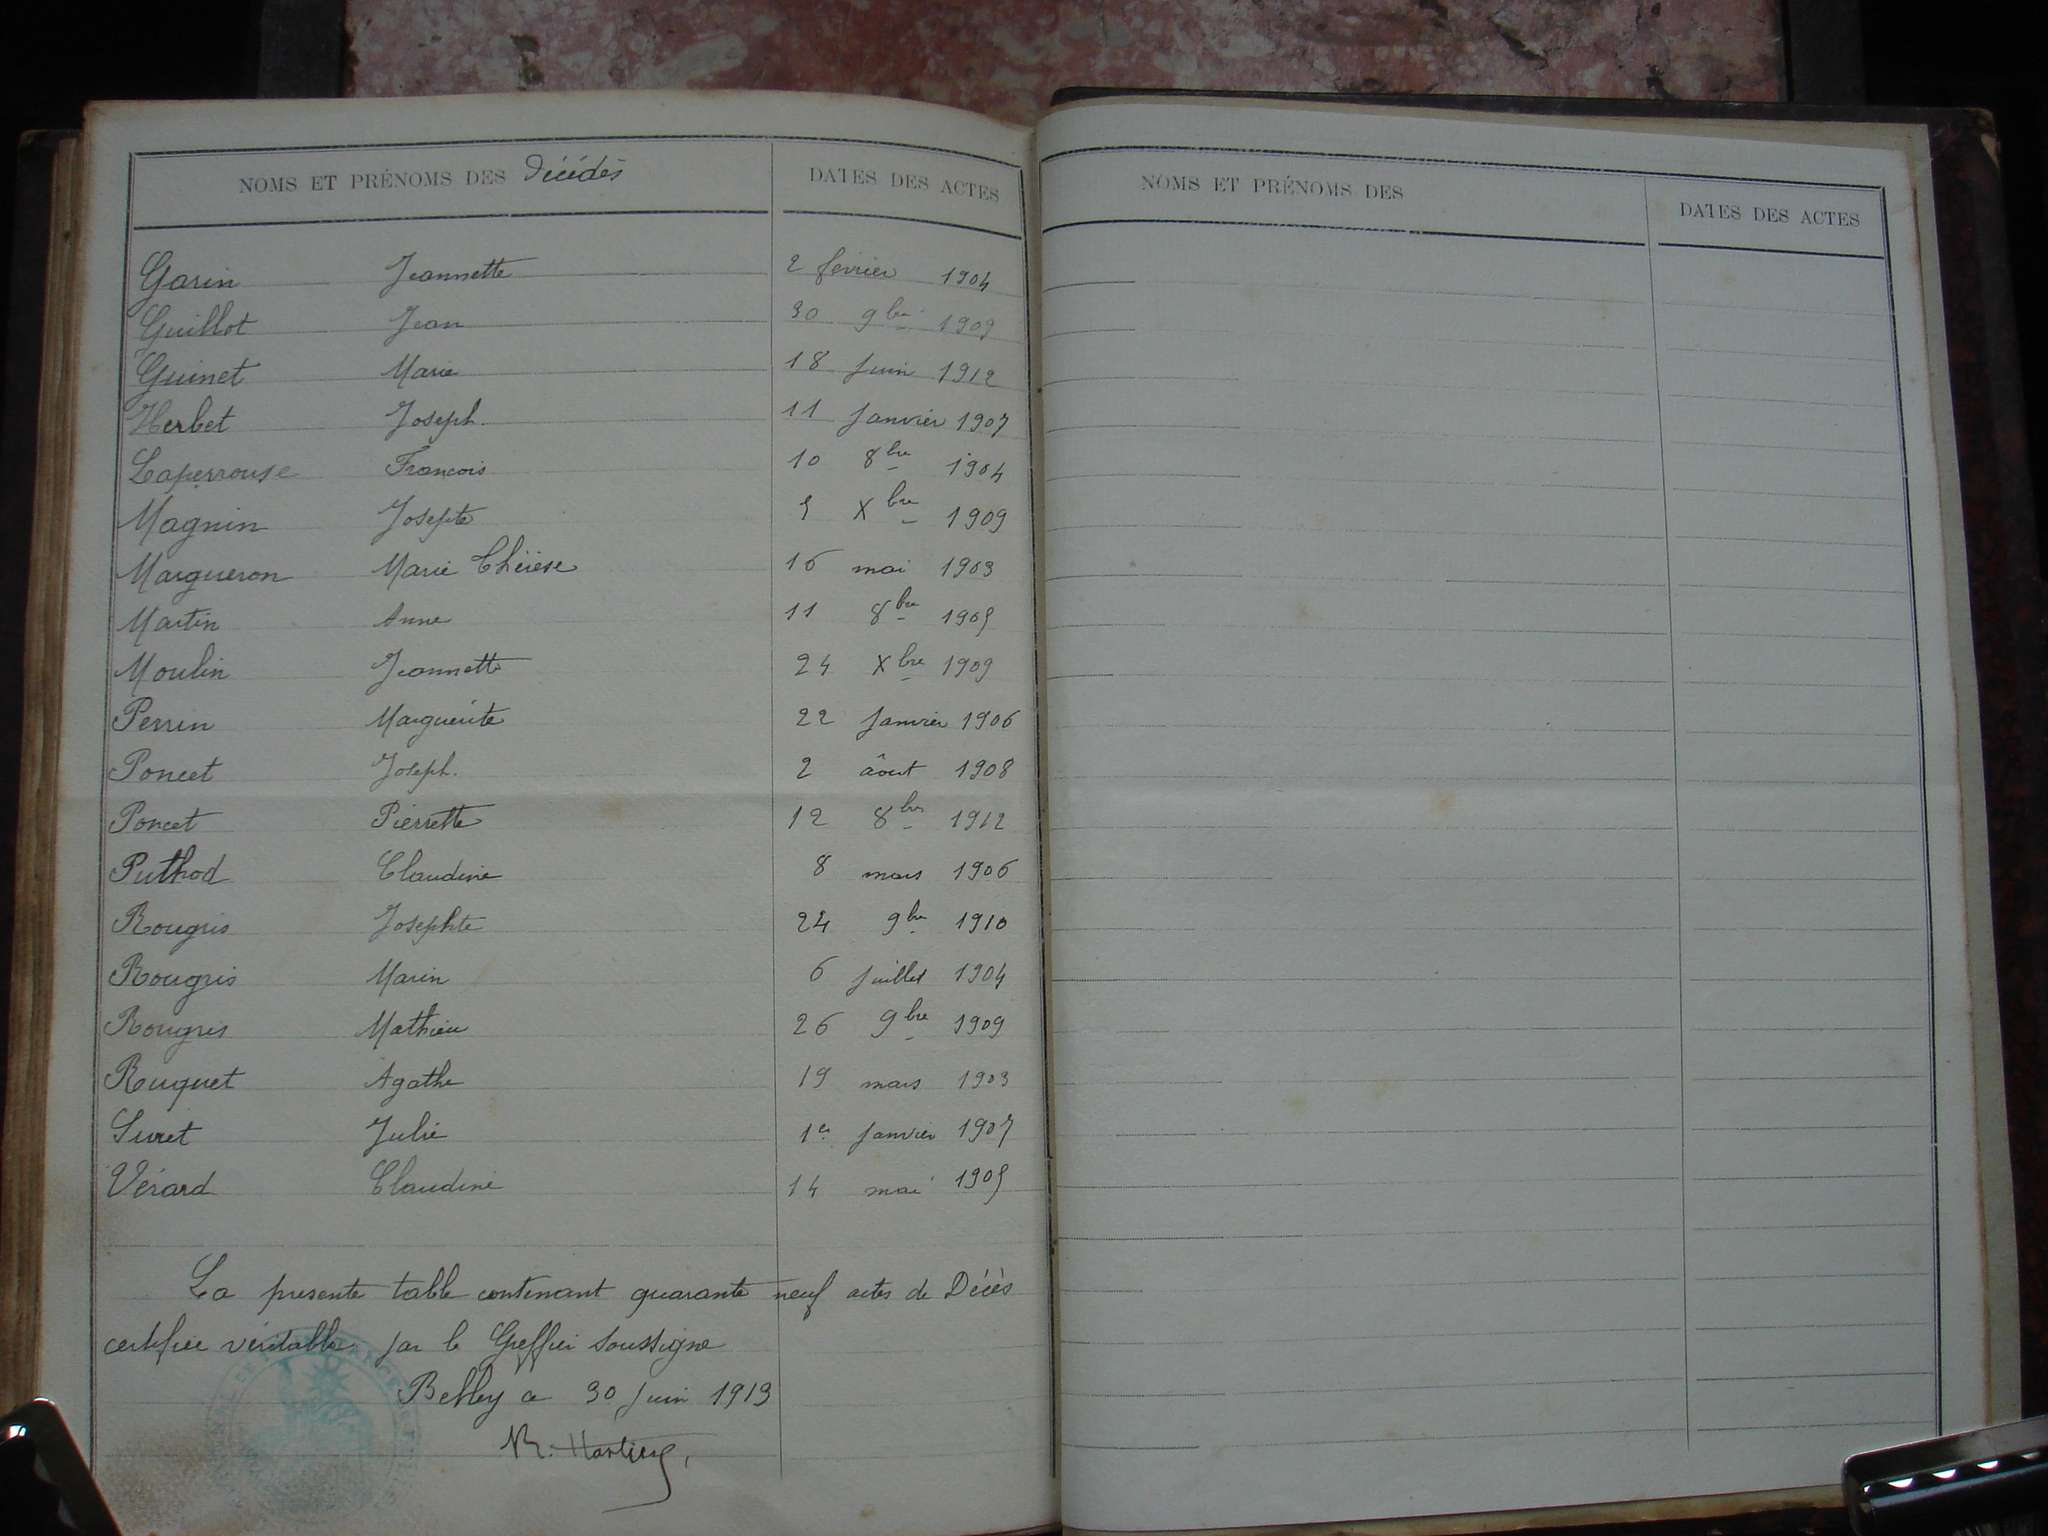 NOMS ET PRÉNOMS DES Décédés DATES DES ACTES
Garin Jeannette 2 février 1904
Guillot Jean 30 9bre 1909
Guinet Marie 18 Juin 1912
Herbet Joseph. 11 Janvier 1907
Laperrouse Francois 10 8bre 1904
Magnin Josephte 5 Xbre 1909
Margueron Marie Thérèse 16 mai 1903
Martin Anne 11 8bre 1905
Moulin Jeannette 24 Xbre 1909
Perrin Marguerite 22 Janvier 1906
Poncet Joseph. 2 âout 1908
Poncet Pierrette 12 8bre 1912
Puthod Claudine 8 mars 1906
Rougris Josephte 24 9bre 1910
Rougris Marin 6 Juillet 1904
Rougris Mathieu 26 9bre 1909
Ruquet Agathe 19 mars 1903
Suret Julie 1er Janvier 1907
Vérard Claudine 14 mai 1905
La presente table contenant quarante neuf actes de Décès
certifiée véritable par le Greffier soussigné
Belley a 30 Juin 1913
NOMS ET PRÉNOMS DES DATES DES ACTES